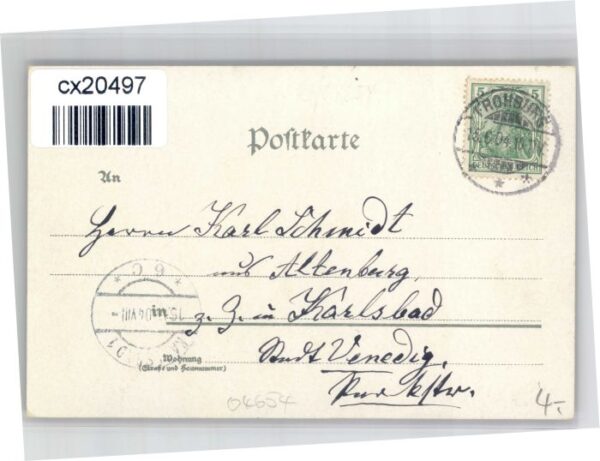 cx20497
5 5
FROHBURG
Postkarte
An
Herrn Karl Schmidt
aus Altenburg,
in z. Z. in Karlsbad
Stadt Venedig,
Parkstr.
Wohnung
(Straße und Hausnummer)
04654
4.-